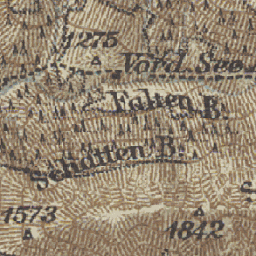 1275
Vord. See
Falten B.
Schatten B.
1573
1842